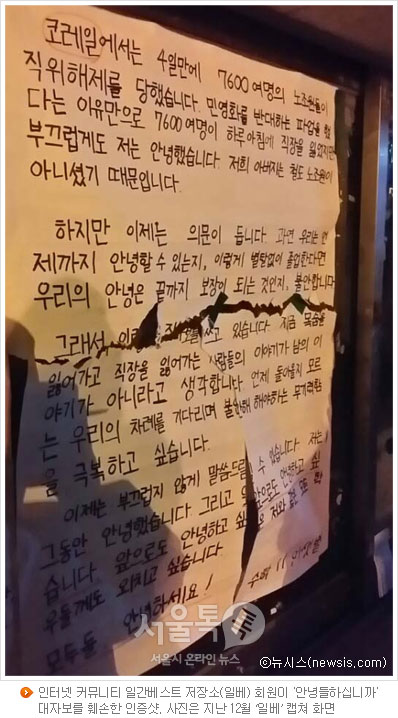 코레일에서는 4일만에 7600여명의 노조원들이
직위해제를 당했습니다. 민영화를 반대하는 파업을 했
다는 이유만으로 7600여명이 하루아침에 직장을 잃었지만
부끄럽게도 저는 안녕했습니다. 저희 아버지는 철도 노조원이
아니셨기 때문입니다.
하지만 이제는 의문이 듭니다. 과연 우리는 언
제까지 안녕할 수 있는지, 이렇게 별탈없이 졸업한다면
우리의 안녕은 끝까지 보장이 되는 것인지, 불안합니다
그래서 쓰고 있습니다. 지금 목숨을
잃어가고 직장을 잃어가는 사람들의 이야기가 남의 이
야기가 아니라고 생각합니다. 언제 돌아올지 모르
는 우리의 차례를 기다리며 불안해 해야하는 무기력함
을 극복하고 싶습니다.
이제는 부끄럽지 않게 말씀드릴 수 있습니다. 저는
그동안 안녕했습니다 그리고 앞으로도 안녕하고 싶
습니다. 앞으로도 안녕하고 싶은 저와 같은 또 학
우들께도 외치고 싶습니다.
모두들 안녕하세요!
수학 11
서울톡톡
서울시 온라인 뉴스
©뉴시스(newsis.com)
인터넷 커뮤니티 일간베스트 저장소(일베) 회원이 '안녕들하십니까'
대자보를 훼손한 인증샷. 사진은 지난 12월 '일베' 캡쳐 화면